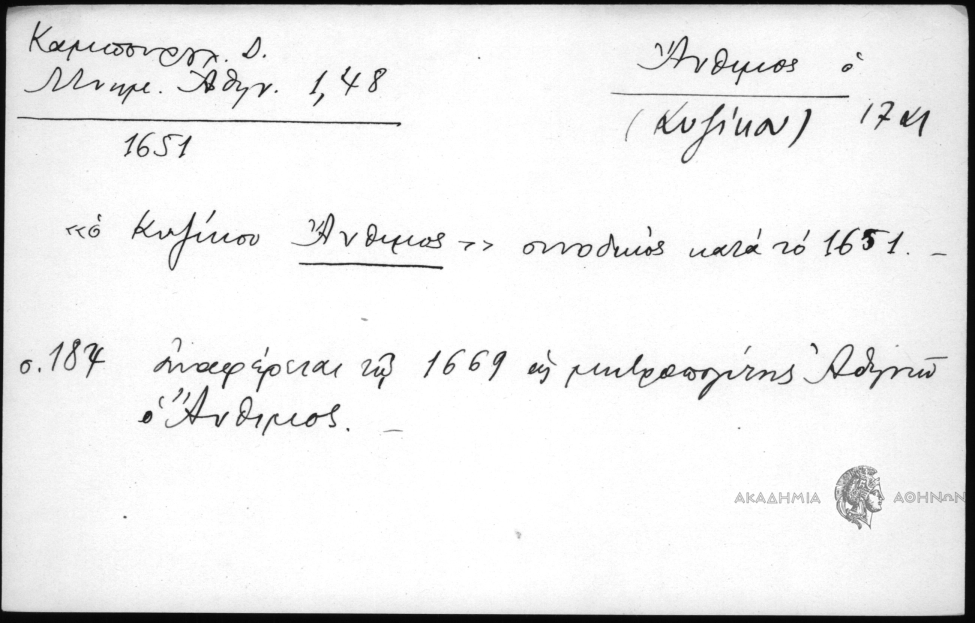 Καμπουρογλ. Δ.
Μνημ. Ἀθην. 1,48
1651
Ἄνθιμος ὁ
(Κυζίκου) 17 αι
«ὁ Κυζίκου Ἄνθιμος» συνοδικός κατά τό 1651. –
σ.187 ἀναφέρεται τῷ 1669 ὡς μητροπολίτης Ἀθηνῶν
ὁ Ἄνθιμος. –
ΑΚΑΔΗΜΙΑ ΑΘΗΝΩΝ